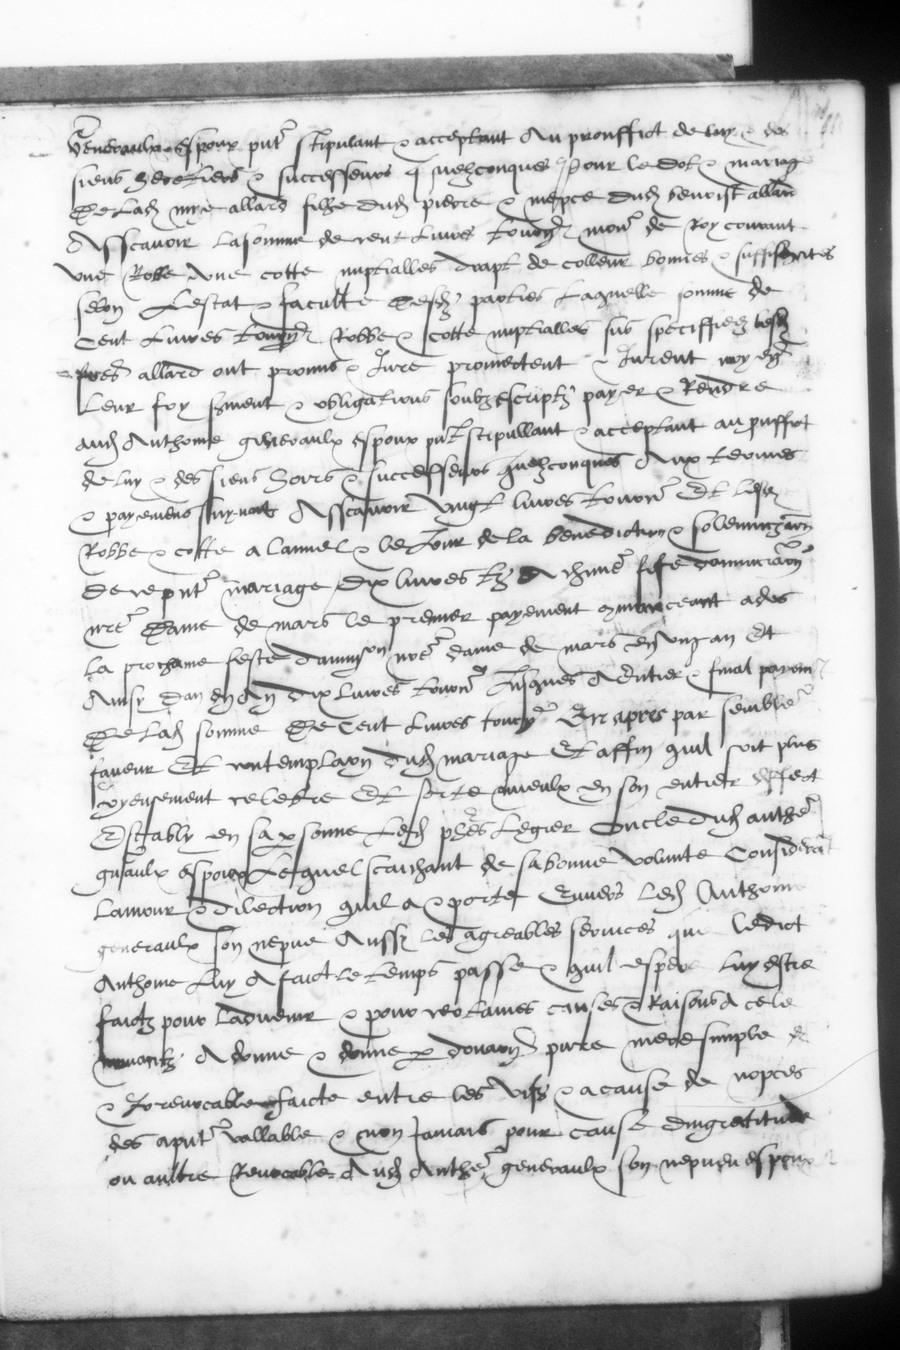 generaulx espoux pnt stipulant & acceptant au prouffict de luy & des
siens heretiers & successeurs quelzconques pour le dot & mariage
de lad allard filhe dud pierre & niepce dud benoist allard
Asscavoir la somme de cent livres tourn monn de Roy courant
une Robbe une cotte nuptialles drapt de colleur bonnes & suffisantes
selon lestat & faculte desd parties laquelle somme de
cent livres tourn Robbe & cotte nuptialles sus speciffiez lesd
freres allard ont promis & Jure promettent & Jurent moyen
leur foy serment & obligations soubzescriptz payer & Rendre
aud Anthoine generaulx espoux pnt stipullant & acceptant au prouffict
de luy & des siens hoirs & successeurs quelzconques Aux termes
& payemens suyvants Asscavoir vingt livres tourn Et lesd
Robbe & cotte a lannel & le Jour de la benediction & solempnization
de ce pnt mariage dix livres tz A feste dannunciation
nre Dame de mars le premier payement commenceant a des
la prochaine feste dannon nre dame de mars en ung an Et
Ainsy dan en An dix livres tourn Jusques A entier & final payement
de lad somme de Cent livres tourn En apres par semble
faveur Et contemplaon dud mariage Et affin quil soit plus
joyeusement celebre Et sorte mieulx en son entier effect
Estably en sa personne led Legier oncle dud anthe
gnaulx espoux Lequel scaichant de sa bonne volunte Considerant
lamour & dilection quil a & porte Envers led Anthoine
generaulx son nepveu Aussi les agreables services que ledict
Anthoine luy A faict le temps passe & quil espere luy estre
faictz pour ladvenir & pour certaines causes & Raisons A ce le
mouvantz A donne & donne par donaon pure mere simple &
& Irrevocable faicte entre les vifz & a cause de nopces
des apnt vallable & non Jamais pour cause dingratitude
ou aultre Revocable Aud Anthe generaulx son nepveu espoux